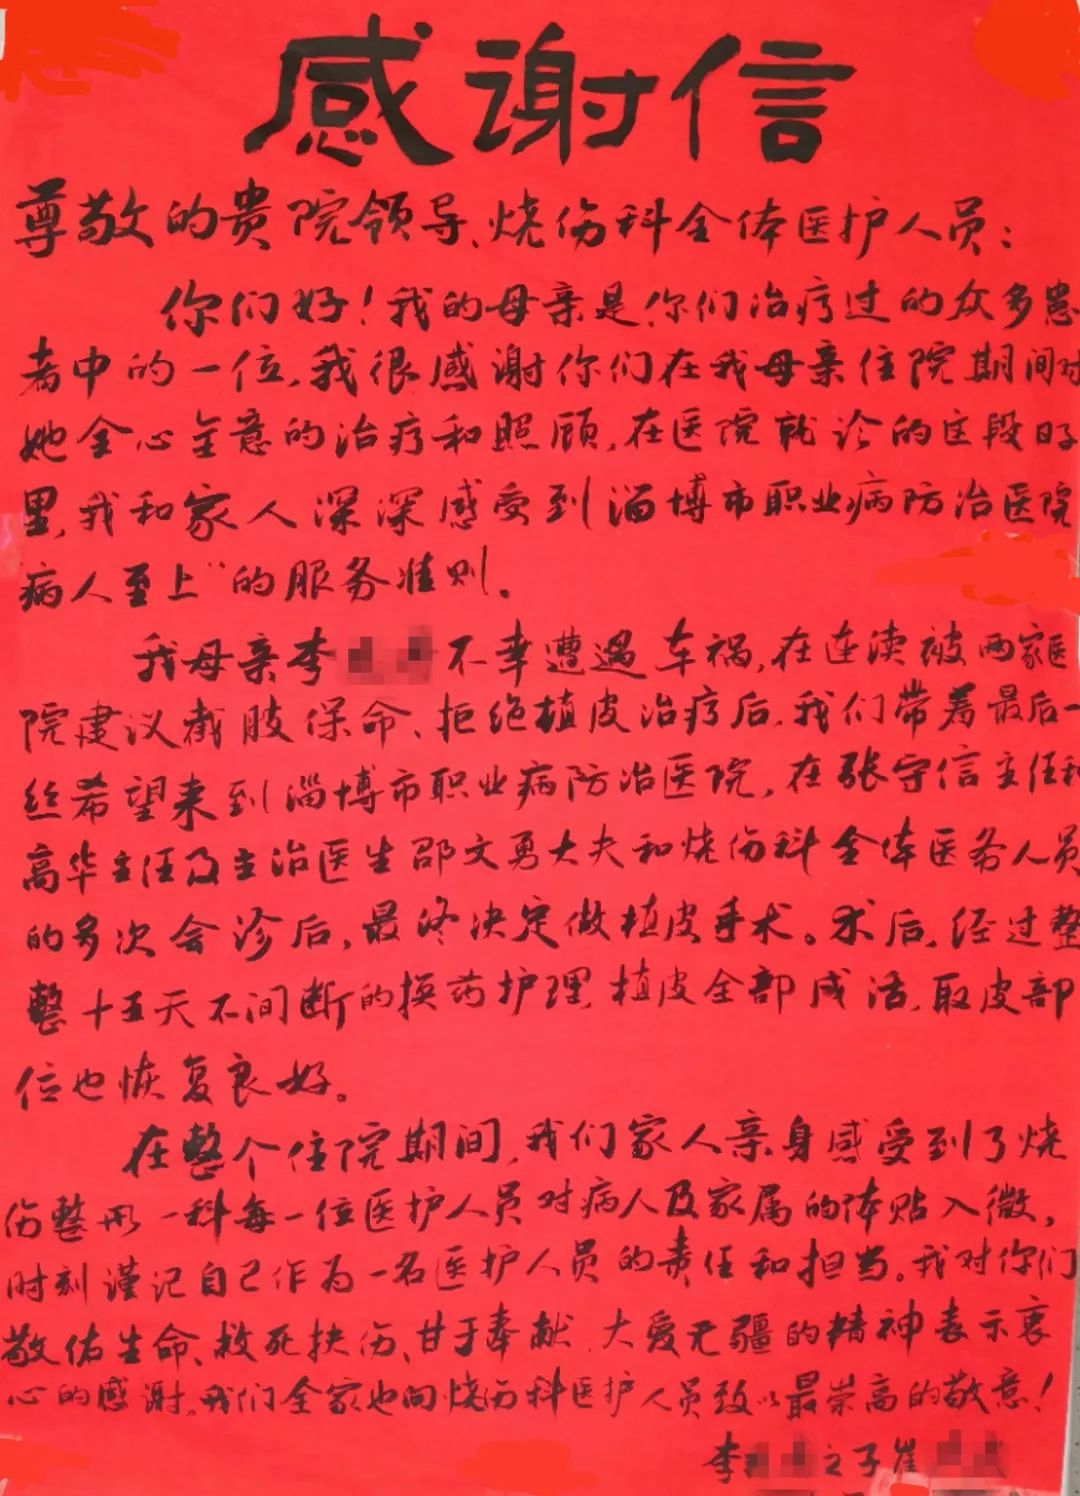 感谢信
尊敬的贵院领导、烧伤科全体医护人员：
你们好！我的母亲是你们治疗过的众多患
者中的一位，我很感谢你们在我母亲住院期间对
她全心全意的治疗和照顾，在医院就诊的这段日子
里，我和家人深深感受到淄博市职业病防治医院
"病人至上"的服务准则。
我母亲李 不幸遭遇车祸，在连续被两家医
院建议截肢保命、拒绝植皮治疗后，我们带着最后一
丝希望来到淄博市职业病防治医院，在张守信主任和
高华主任及主治医生邵文勇大夫和烧伤科全体医务人员
的多次会诊后，最终决定做植皮手术。术后，经过整
整十五天不间断的换药护理，植皮全部成活，取皮部
位也恢复良好。
在整个住院期间，我们家人亲身感受到了烧
伤整形一科每一位医护人员对病人及家属的体贴入微，
时刻谨记自己作为一名医护人员的责任和担当。我对你们
敬佑生命、救死扶伤、甘于奉献、大爱无疆的精神表示衷
心的感谢。我们全家也向烧伤科医护人员致以最崇高的敬意！
李 之子崔